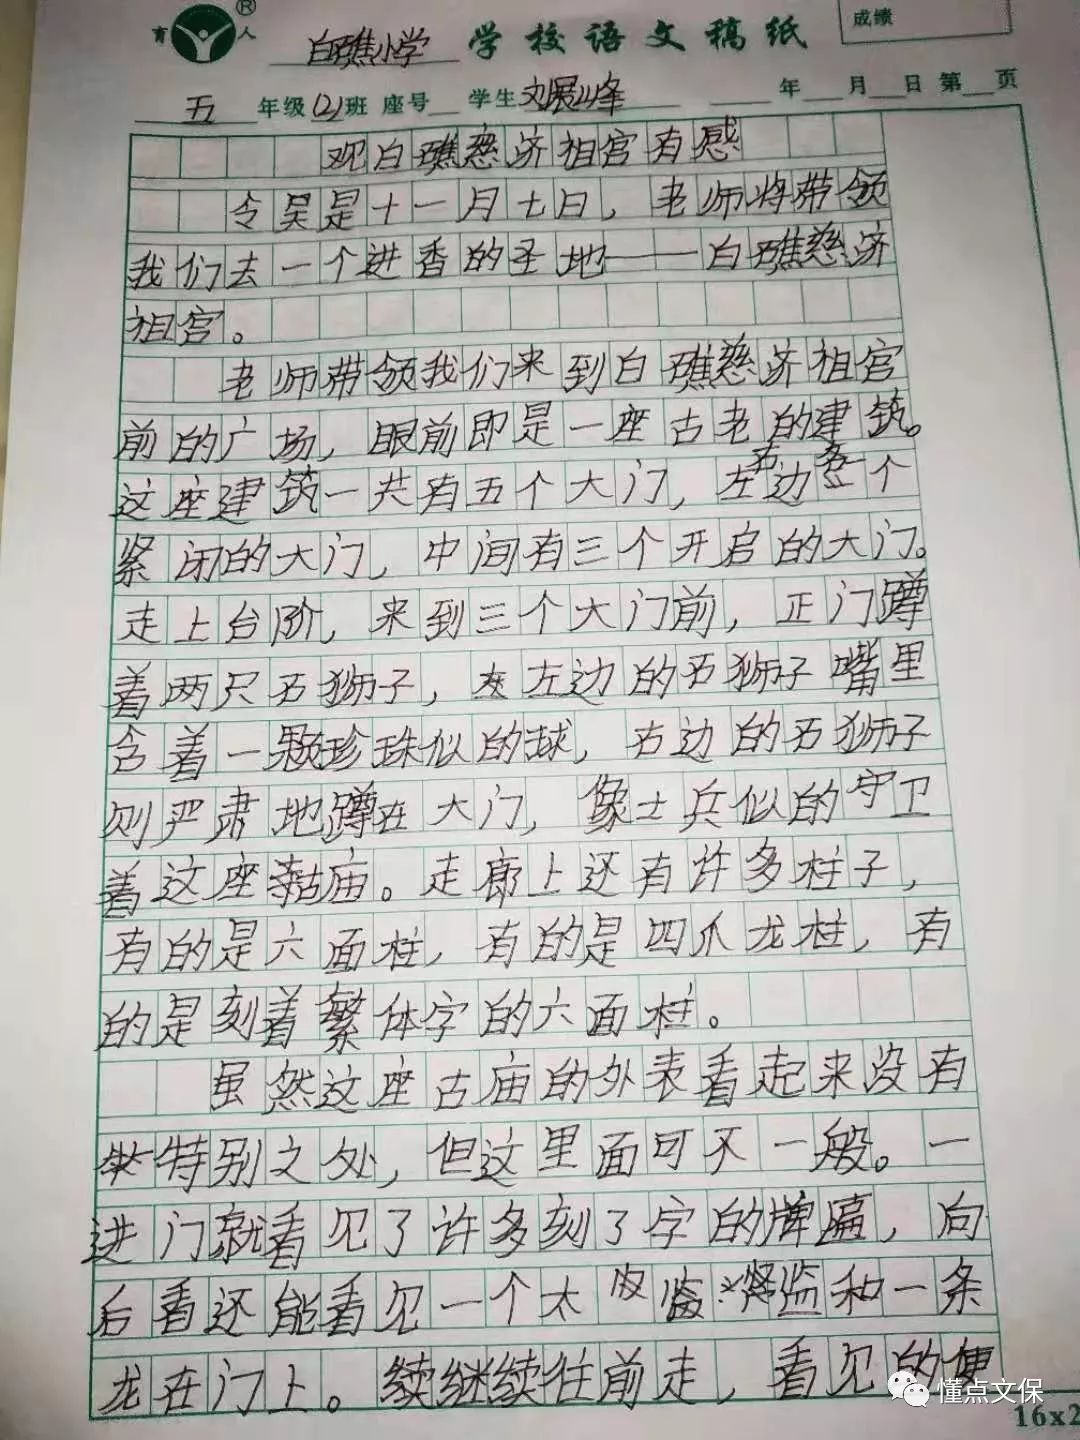 育 ® 人 白礁小学 学校语文稿纸 成绩
五 年级(2)班 座号 学生刘展峰 年 月 日 第 页
观白礁慈济祖宫有感
令吴是十一月七日，老师将带领
我们去一个进香的圣地——白礁慈济
祖宫。
老师带领我们来到白礁慈济祖宫
前的广场，眼前即是一座古老的建筑。
这座建筑一共有五个大门，左右边各一个
紧闭的大门，中间有三个开启的大门。
走上台阶，来到三个大门前，正门蹲
着两只石狮子，左边的石狮子嘴里
含着一颗珍珠似的球，右边的石狮子
则严肃地蹲在大门，像士兵似的守卫
着这座古庙。走廊上还有许多柱子，
有的是六面柱，有的是四爪龙柱，有
的是刻着繁体字的六面柱。
虽然这座古庙的外表看起来没有
特别之处，但这里面可不一般。一
进门就看见了许多刻了字的牌匾，向
后看还能看见一个太监和一条
龙在门上。续继续往前走，看见的便
懂点文保
16x2